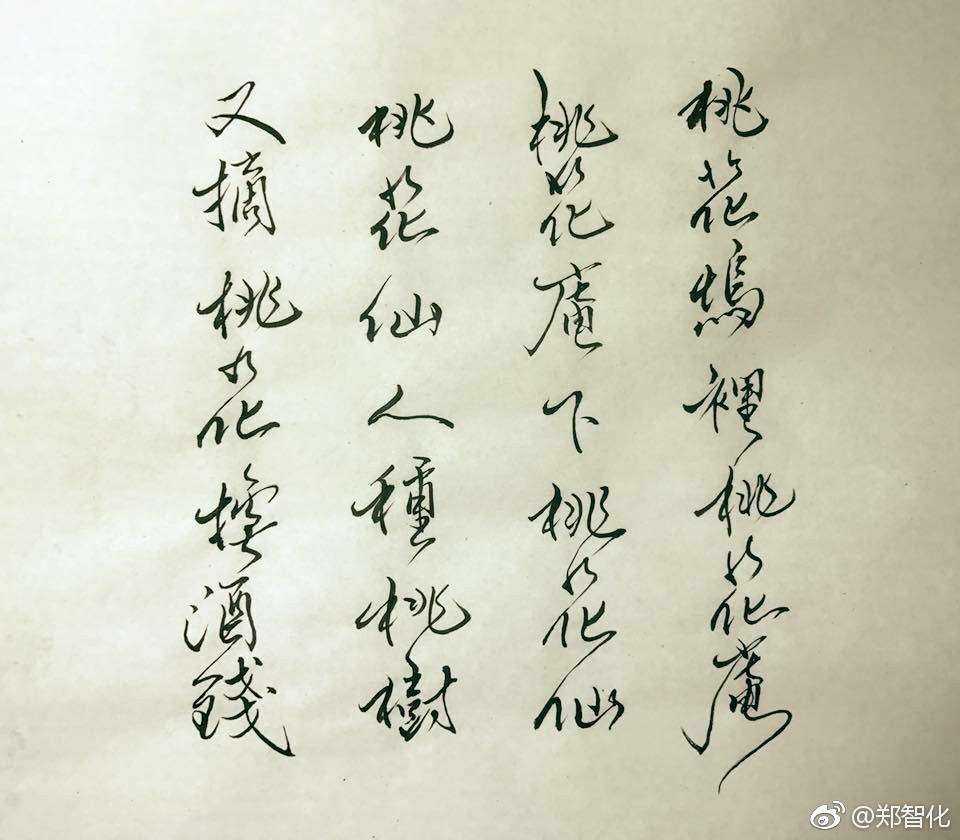 桃花塢裡桃花庵
桃花庵下桃花仙
桃花仙人種桃樹
又摘桃花換酒錢
@郑智化